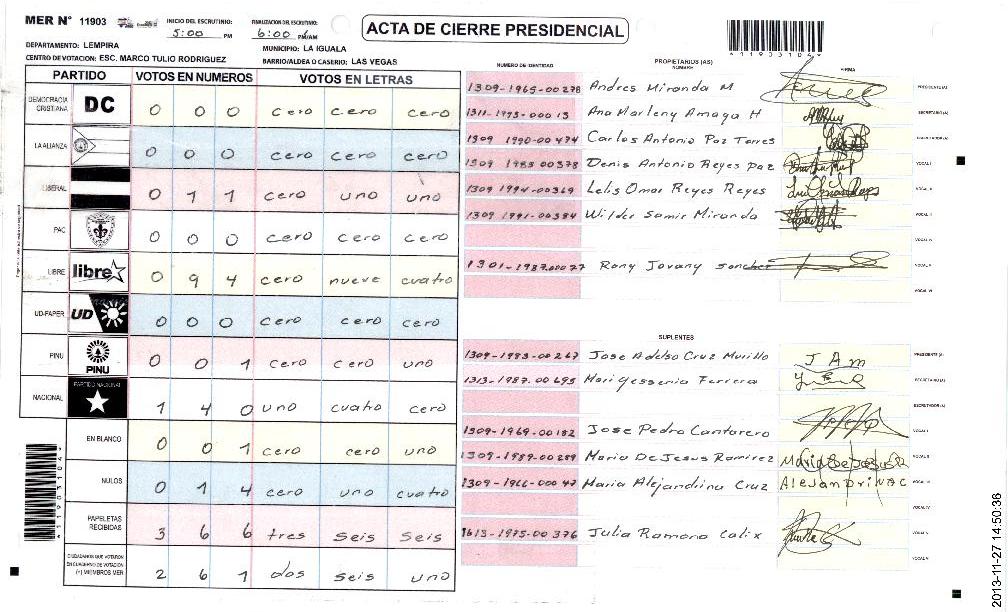 MER N° 11903
INICIO DEL ESCRUTINIO: 5:00 PM
FINALIZACION DEL ESCRUTINIO: 6:00 PM/AM
ACTA DE CIERRE PRESIDENCIAL
DEPARTAMENTO: LEMPIRA
MUNICIPIO: LA IGUALA
CENTRO DE VOTACION: ESC. MARCO TULIO RODRIGUEZ
BARRIO/ALDEA O CASERIO: LAS VEGAS
PARTIDO VOTOS EN NUMEROS VOTOS EN LETRAS
DEMOCRACIA CRISTIANA DC 0 0 0 cero cero cero
LA ALIANZA 0 0 0 cero cero cero
LIBERAL 0 1 1 cero uno uno
PAC 0 0 0 cero cero cero
LIBRE libre 0 9 4 cero nueve cuatro
UD-FAPER UD 0 0 0 cero cero cero
PINU PINU 0 0 1 cero cero uno
NACIONAL PARTIDO NACIONAL 1 4 0 uno cuatro cero
EN BLANCO 0 0 1 cero cero uno
NULOS 0 1 4 cero uno cuatro
PAPELETAS RECIBIDAS 3 6 6 tres seis seis
CIUDADANOS QUE VOTARON EN CUADERNO DE VOTACION (+) MIEMBROS MER 2 6 1 dos seis uno
NUMERO DE IDENTIDAD
PROPIETARIOS (AS)
NOMBRE
FIRMA
1309-1965-00278 Andres Miranda M PRESIDENTE(A)
1311-1975-00013 Ana Marleny Amaya H SECRETARIO(A)
1309 1990-00474 Carlos Antonio Paz Torres ESCRUTADOR(A)
1309 1985 00378 Denis Antonio Reyes paz VOCAL I
1309 1994-00369 Lelis Omar Reyes Reyes VOCAL II
1309-1991-00384 Wilder Samir Miranda VOCAL III
VOCAL IV
1301-1987.00077 Rony Jovany Sanchez VOCAL V
VOCAL VI
SUPLENTES
1309-1983-00267 Jose Adelso Cruz Murillo J A m PRESIDENTE (A)
1313-1987.00695 Mari Yessenia Ferrera SECRETARIO(A)
ESCRUTADOR(A)
1309-1969-00182 Jose Pedro Cantarero VOCAL I
1309-1989-00289 Maria De Jesus Ramirez VOCAL II
1309-1966-000 47 Maria Alejandrina Cruz VOCAL III
VOCAL IV
1613-1975-00376 Julia Ramona Calix VOCAL V
VOCAL VI
2013-11-27 14:50:36